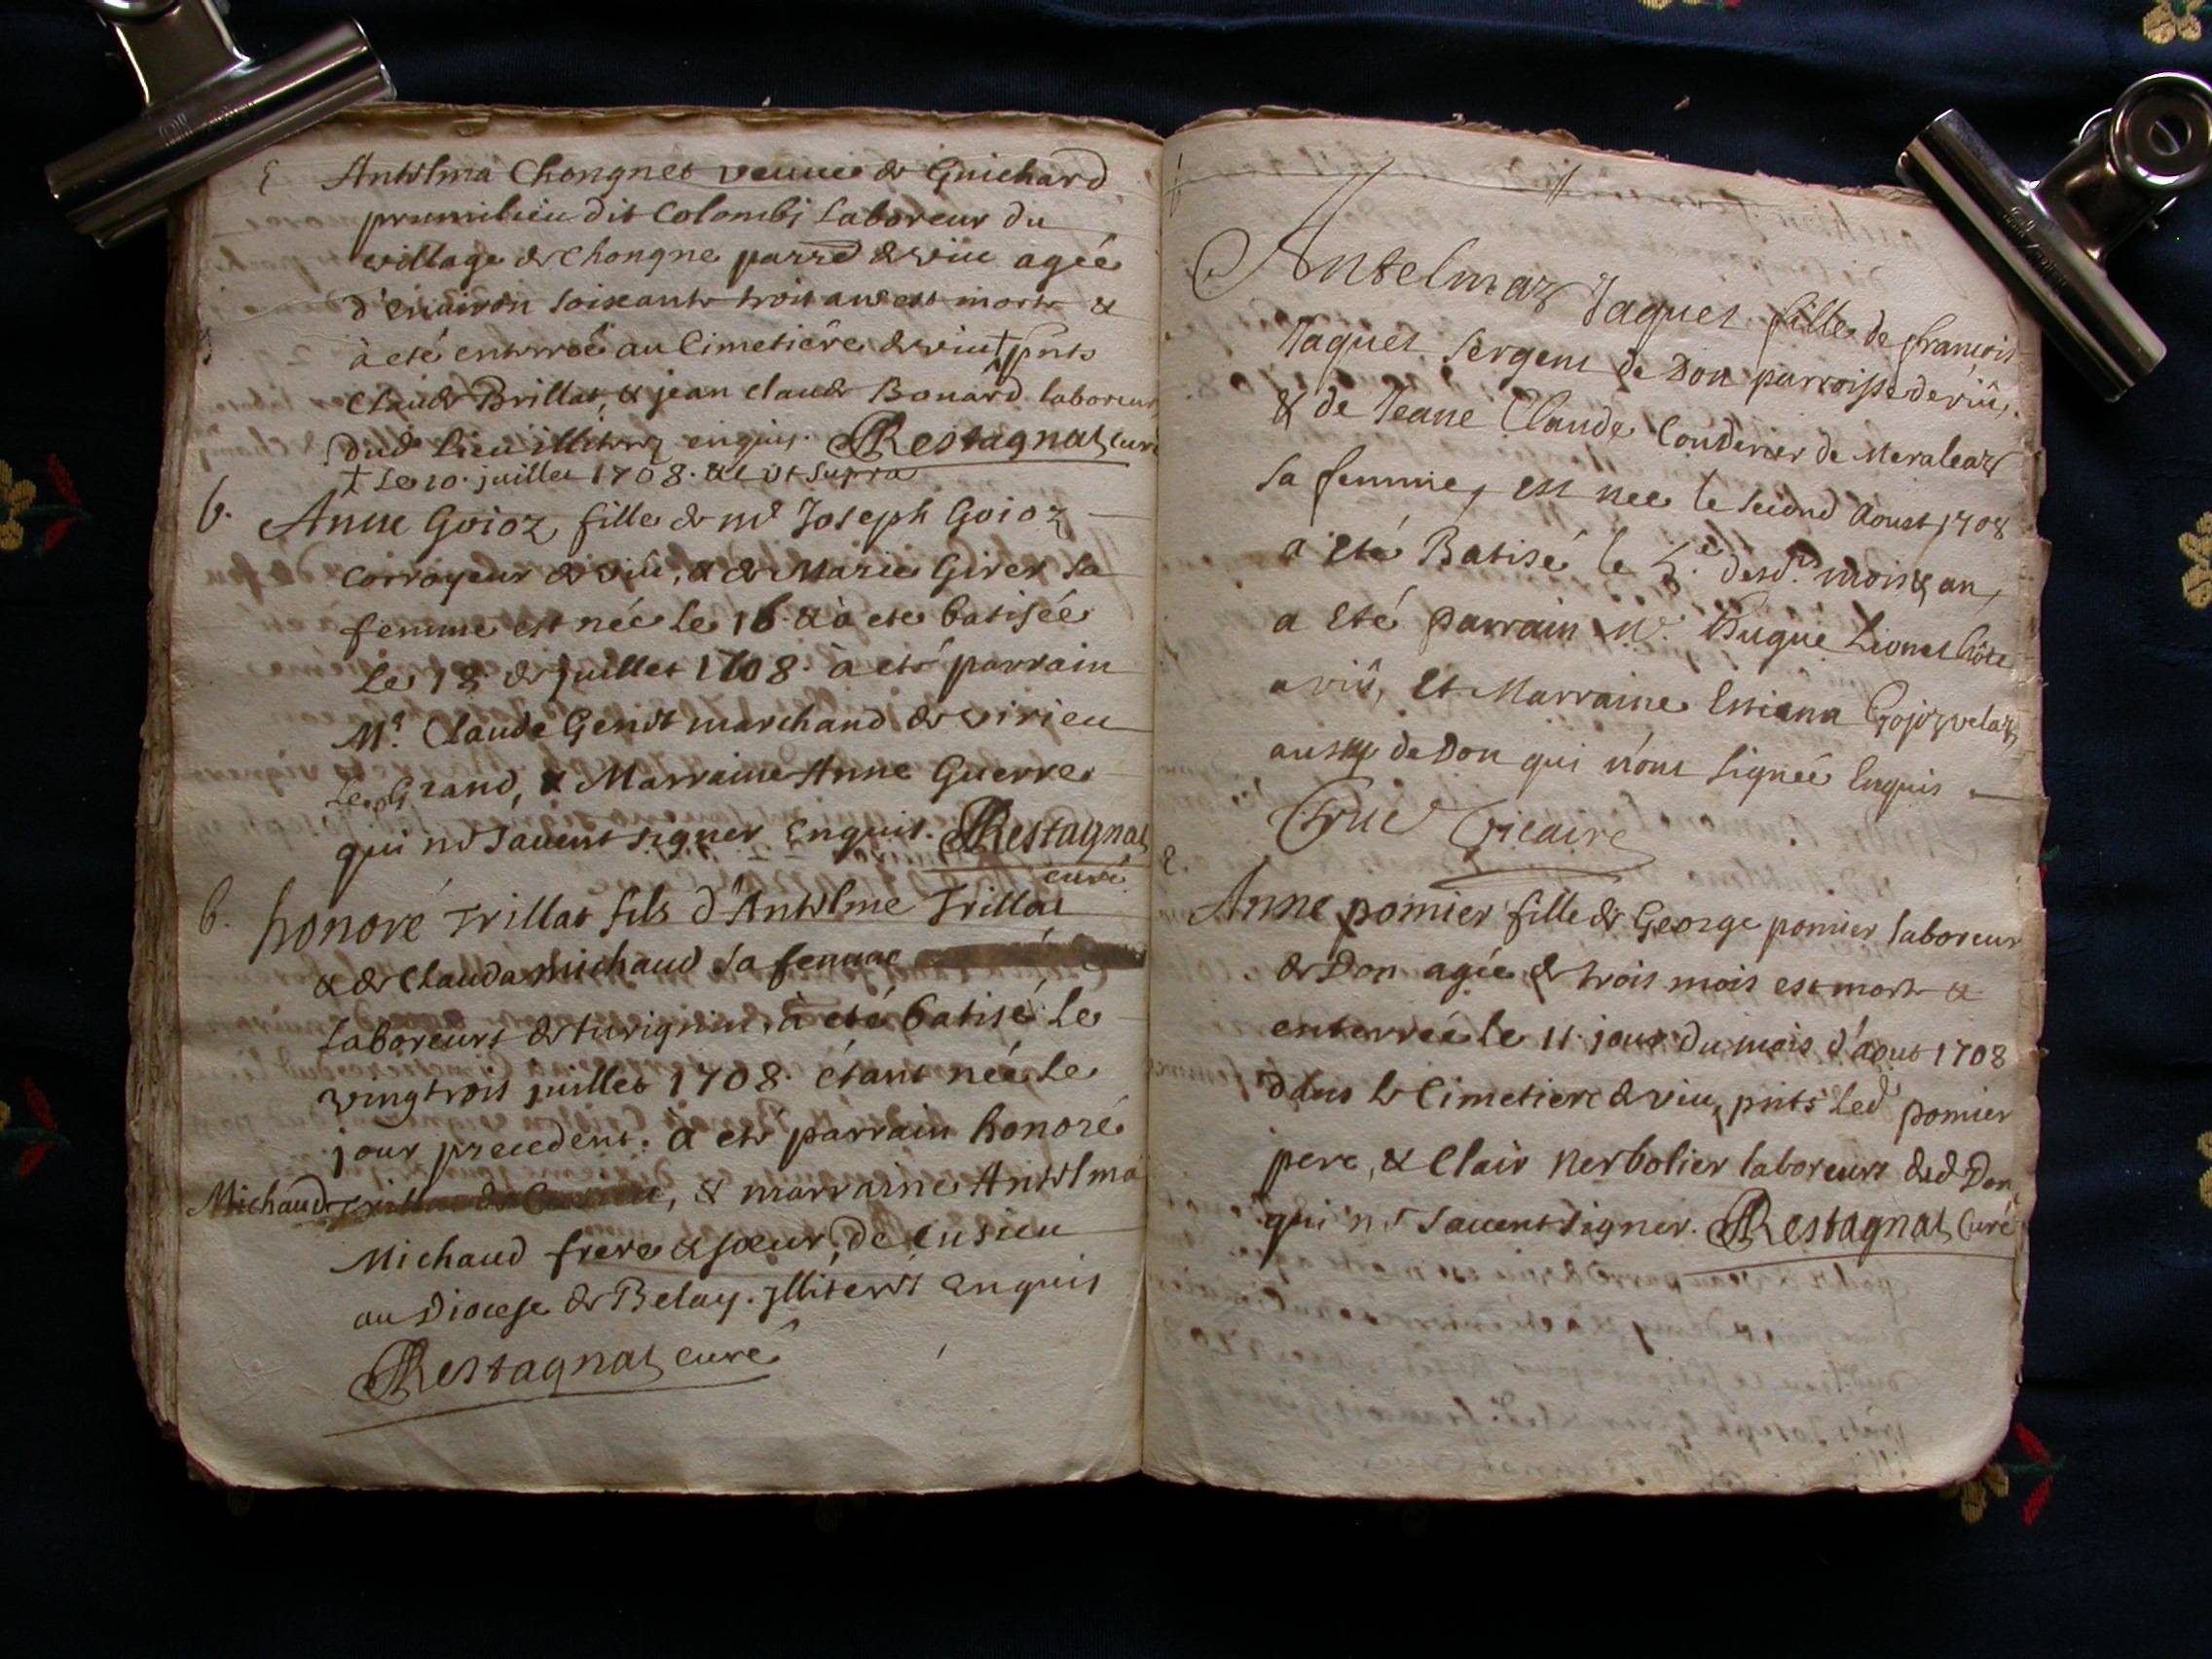 Antelma Chongnet veuue de Guichard
prumilieu dit Colombj Laboreur du
village de Chongne parr. de viu agée
d'enuiron soixante trois ans est morte &
à eté enterrée au Cimetiére de viu † pnts
Claude Brillat, & jean claude Bonard laboreurs
dud. Lieu illiterez enquis. Restagnat curé
† Le 10. juillet 1708. et ut supra
b. Anne Goioz fille de md Joseph Goioz
Corroyeur de viû, & de Marie Girer sa
femme est née Le 16. & à eté batisée
Le 18. de juillet 1708. à eté parrain
Mr. Claude Genet marchand de virieu
Le Grand, & Marraine Anne Guerre
qui ne sauent signer enquis. Restagnat
curé
b. honoré Trillat fils d'Antelme Trillat
& de Clauda michaud sa femme
Laboreurs de turignin, à eté batisé Le
vingtrois juillet 1708. étant née Le
jour precedent. à eté parrain honoré
Michaud, & marraine Antelma
Michaud frere & sœur, de Cusieu
au Diocese de Belay. Illiterés enquis
Restagnat curé
Antelmaz Jaquet fille de françois
Jaquet sergent de Don parroisse de viû,
& de Jeane Claude de Meraleaz
sa femme, est nee le second Aoust 1708
a eté Batisé le desd. mois & an,
a eté parrain Mr. Hugue Lionet hôte
a viû, et Marraine Estiena
aussy de Don qui n'ont signée Enquis
Truc Vicaire
Anne pomier fille de George pomier laboreur
de Don agée de trois mois est morte &
enterrée le 11. jour du mois d'aout 1708
dans le Cimetiere de viu, pnts led. pomier
pere, & Clair Nerbolier laboreurs dud Don
qui ne sauent signer. Restagnat Curé